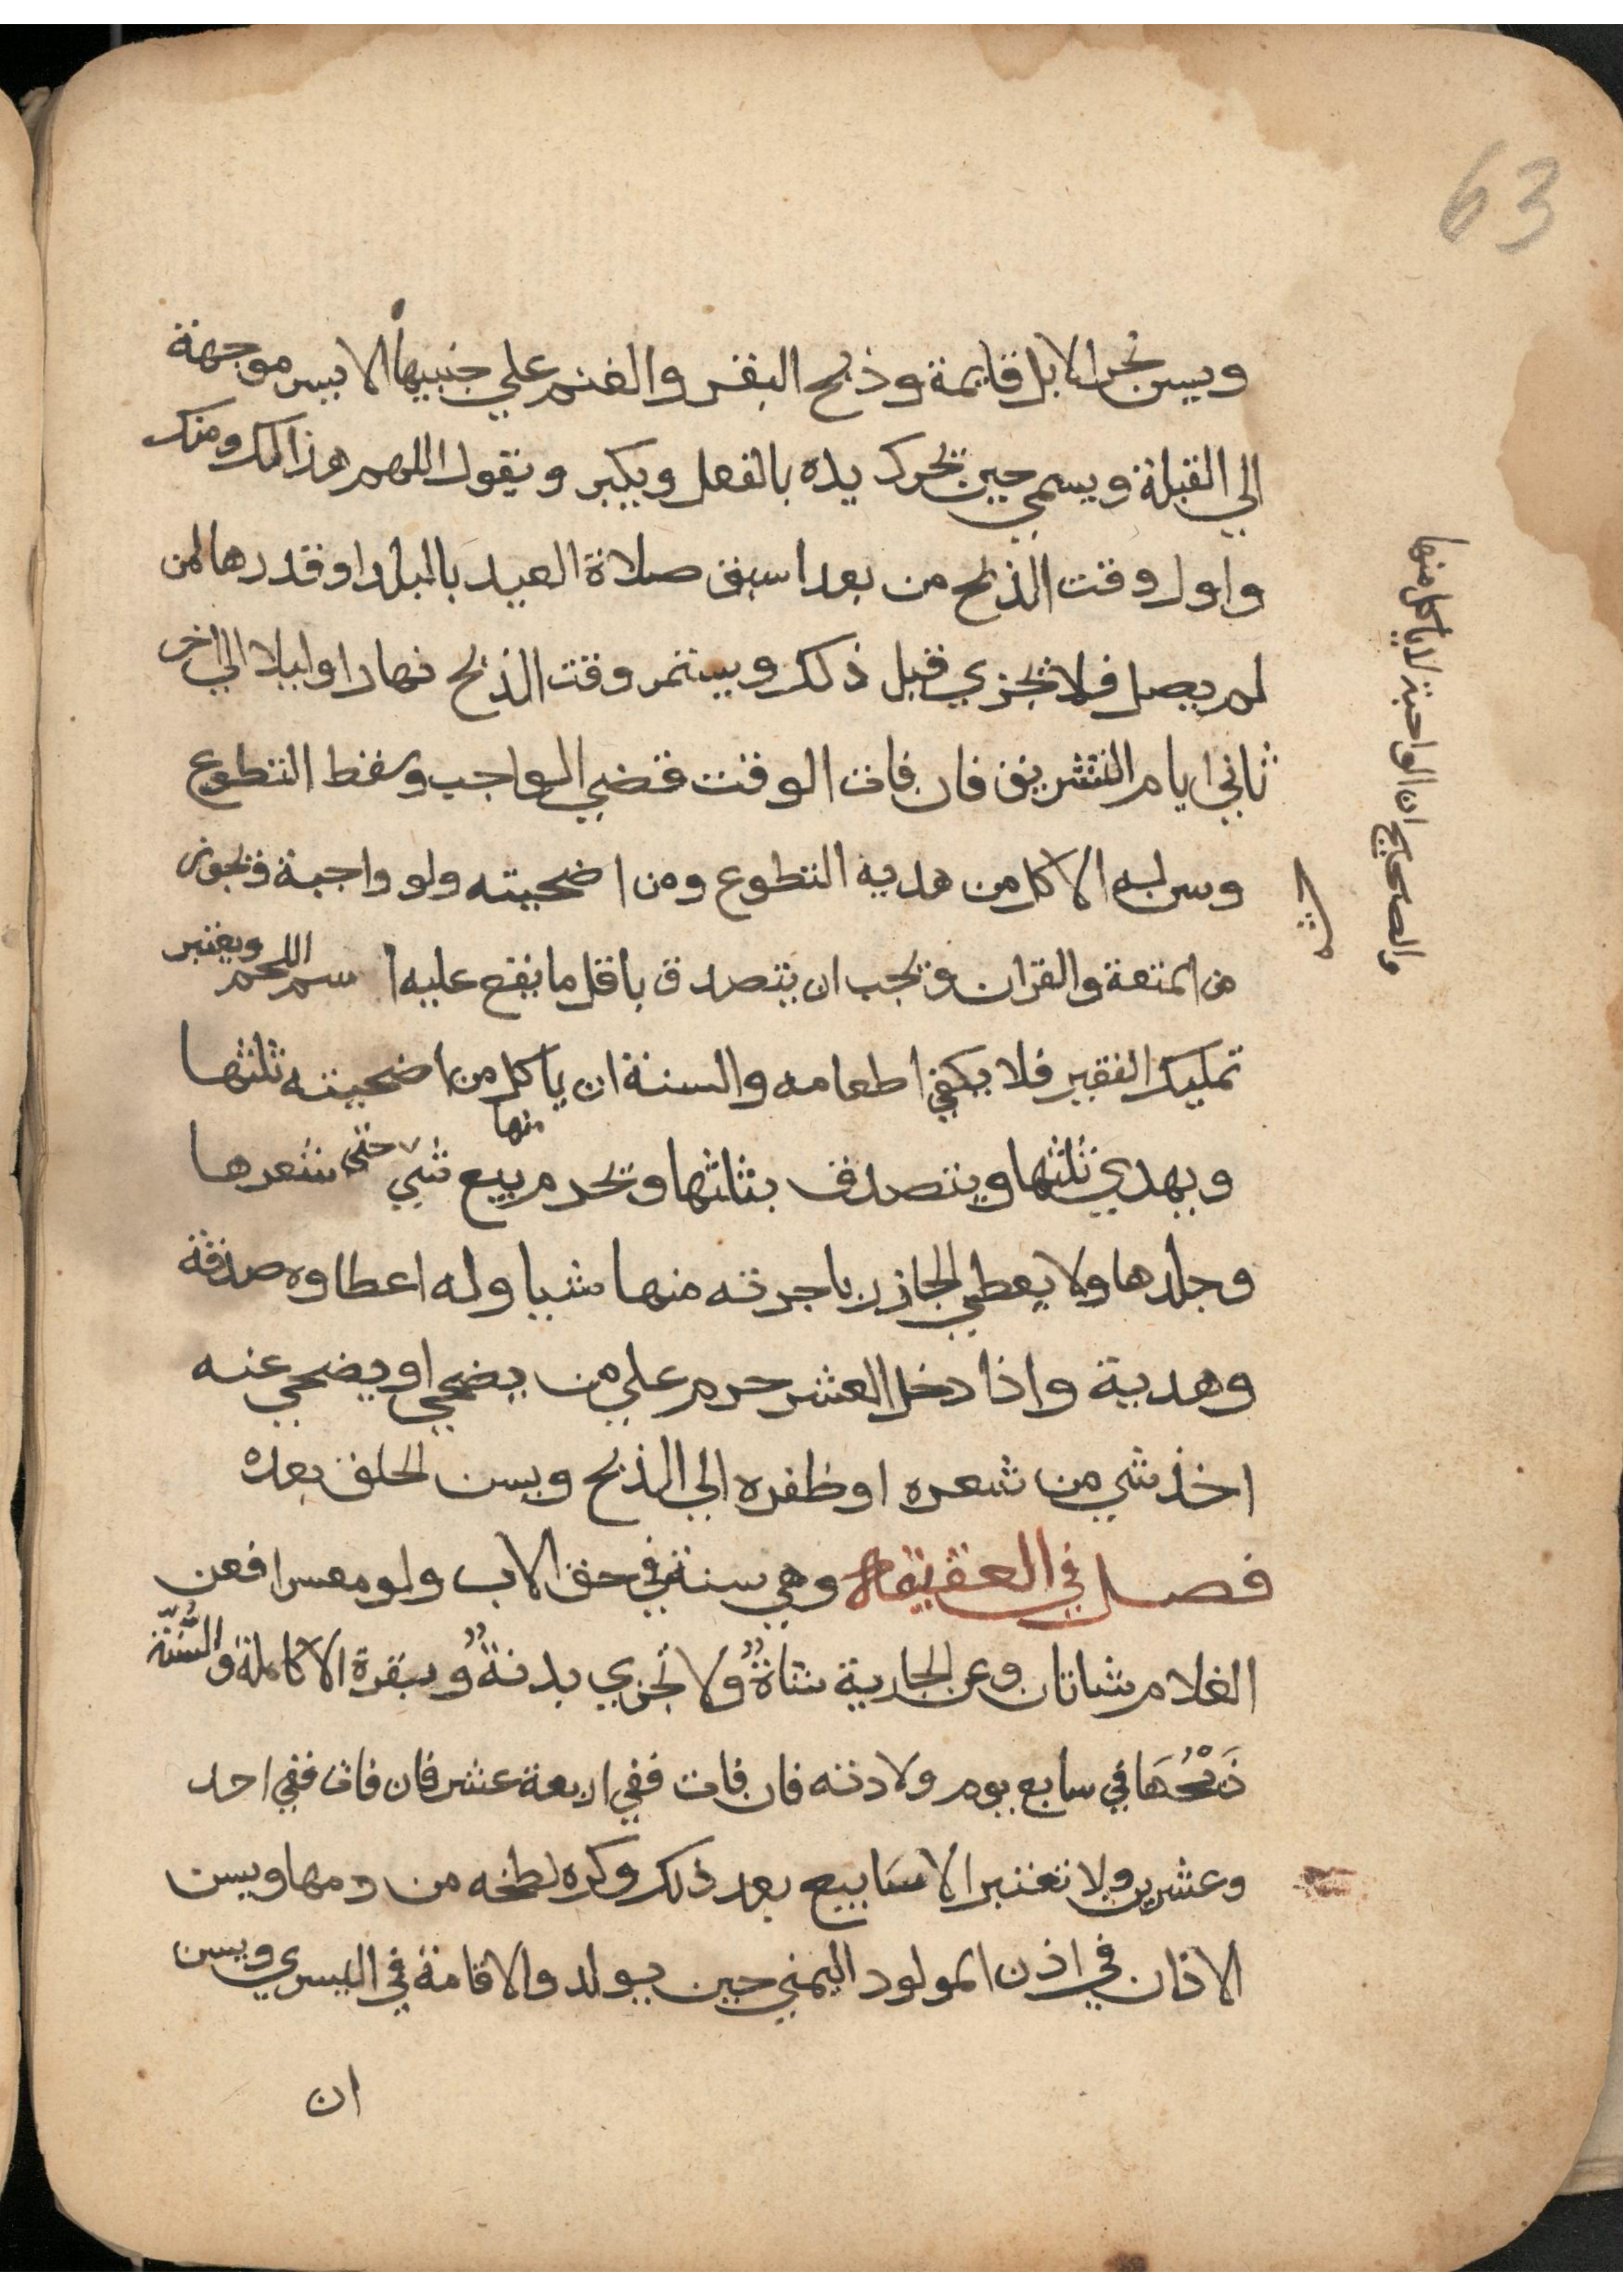 63
ويسن نحر الابل قايمة وذبح البقر والغنم علي جنبيها الايسر موجهة
الي القبلة ويسمي حين يحرك يده بالفعل ويكبر ويقول اللهم هذا لك ومنك
واول وقت الذبح من بعد اسبق صلاة العيد بالبلد او قدرها لمن
لم يصل فلا تجزي قبل ذلك ويستمر وقت الذبح نهارا وليلا الي اخر
ثاني ايام التشريق فان فات الوقت قضي الواجب وسقط التطوع
وسن له الاكل من هديه التطوع ومن اضحيته ولو واجبة ويجوز
من المتعة والقران ويجب ان يتصدق باقل ما يقع عليه اسم اللحم ويعتبر
تمليك الفقير فلا يكفي اطعامه والسنة ان ياكل من اضحيته ثلثها
ويهدي ثلثها ويتصدق بثلثها ويحرم بيع شي منها حتي شعرها
وجلدها ولا يعطي الجازر باجرته منها شيا وله اعطاوه صدقة
وهدية واذا دخل العشر حرم علي من يضحي او يضحي عنه
اخذ شي من شعره او ظفره الي الذبح ويسن الحلق بعده
فصل في العقيقة وهي سنة في حق الاب ولو معسرا فعن
الغلام شاتان وعن الجارية شاةٌ ولا تجزي بدنةٌ وبقرة الا كاملة والسُّنّة
ذَبْحُهَا في سابع يوم ولادته فان فات ففي اربعة عشر فان فات ففي احد
وعشرين ولا تعتبر الاسَابيع بعد ذلك وكره لطخه من دمها ويسن
الاذان في اذن المولود اليمني حين يولد والاقامة في اليسري ويسن
ان
والصحايح ان الواجبة لا ياكل منها